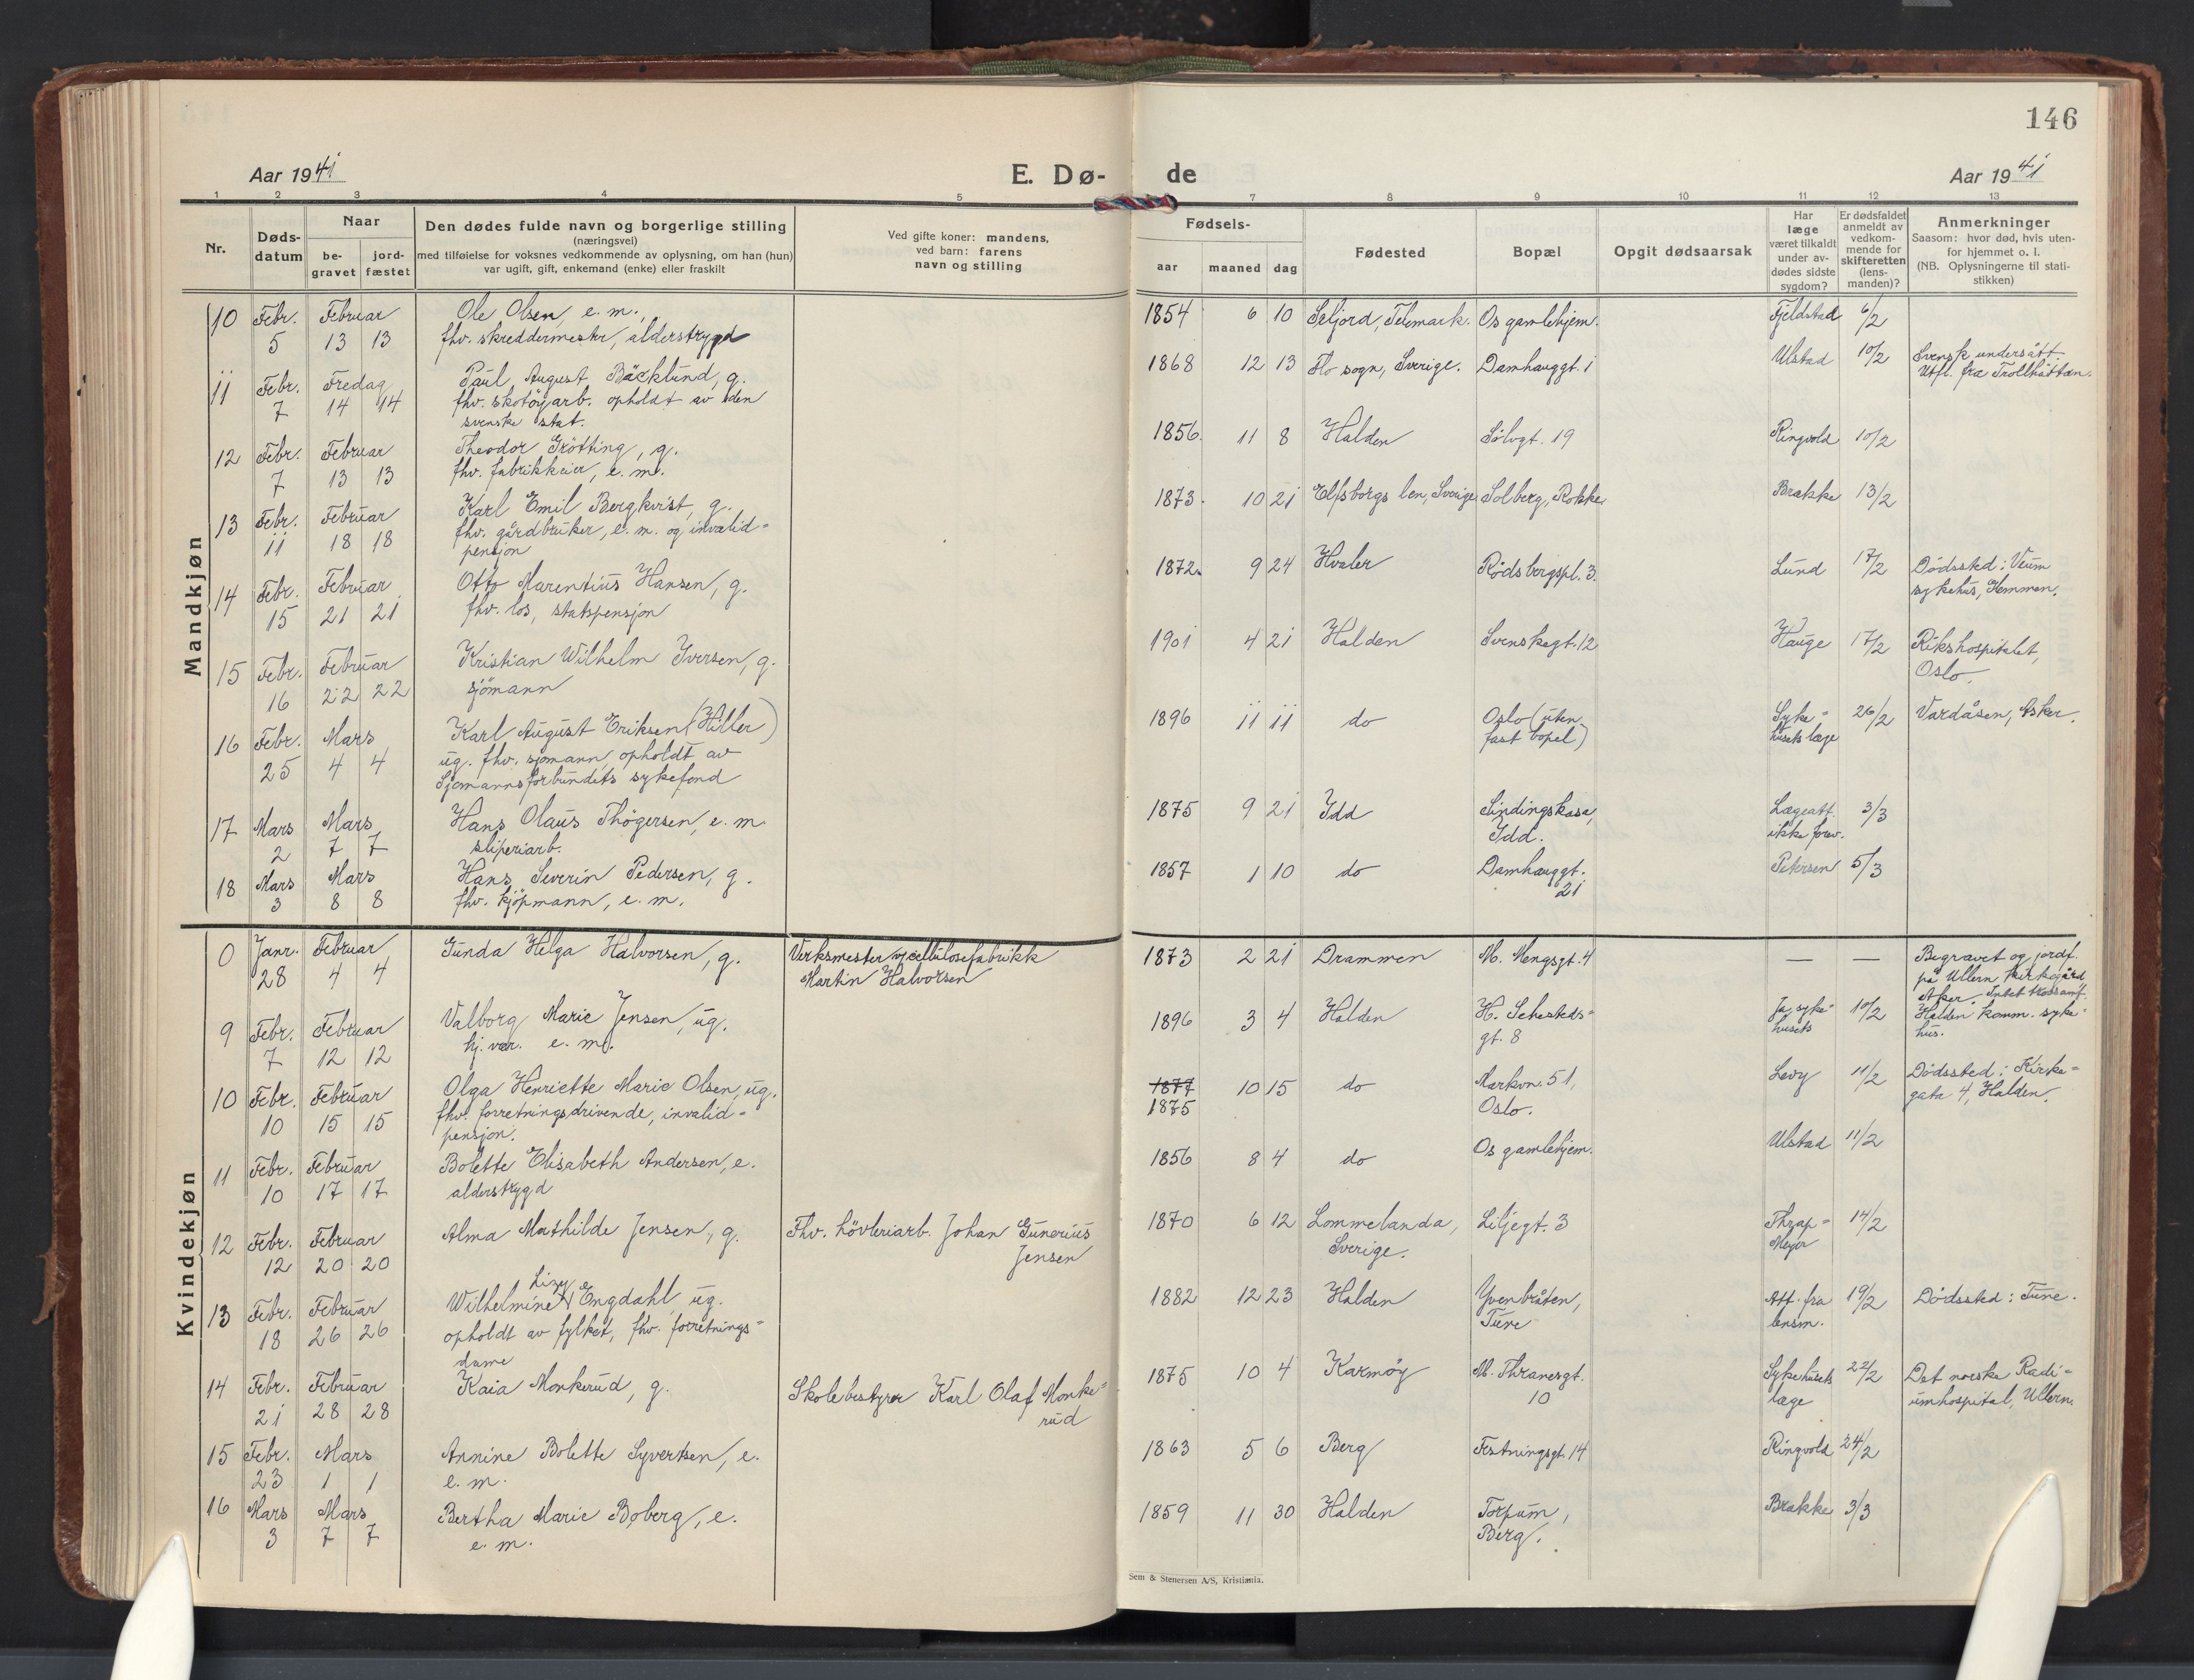 146
Aar 1941
E. Dø-
de
Aar 1941
1 2 3 4 5 7 8 9 10 11 12 13
Nr.
Døds-
datum
Naar
be-
gravet
jord-
fæstet
Den dødes fulde navn og borgerlige stilling
(næringsvei)
med tilføielse for voksnes vedkommende av oplysning, om han (hun)
var ugift, gift, enkemand (enke) eller fraskilt
Ved gifte koner: mandens,
ved barn: farens
navn og stilling
Fødsels-
aar
maaned
dag
Fødested
Bopæl
Opgit dødsaarsak
Har
læge
været tilkaldt
under av-
dødes sidste
sygdom?
Er dødsfaldet
anmeldt av
vedkom-
mende for
skifteretten
(lens-
manden)?
Anmerkninger
Saasom: hvor død, hvis uten-
for hjemmet o. l.
(NB. Oplysningerne til stati-
stikken)
Mandkjøn
10 Febr. Februar Ole Olsen, e. m., 1854 6 10 Seljord, Telemark. Os gamlehjem. Fjeldstad 6/2
5 13 13 fhv. skreddermester, alderstrygd
11 Febr. Fredag Paul August Bäcklund, g. 1868 12 13 Flo sogn, Sverige. Damhauggt. 1 Ulstad 10/2 Svensk undersått.
7 14 14 fhv. skotøyarb. opholdt av den Utfl. fra Trollhättan.
svenske stat.
12 Febr. Februar Theodor Grötting, g. 1856. 11 8 Halden Sølvgt. 19 Ringvold 10/2
7 13 13 fhv. fabrikkeier, e. m.
13 Febr. Februar Karl Emil Bergkvist, g. 1873. 10 21 Elfsborgs len, Sverige Solberg, Rokke Brække 13/2
11 18 18 fhv. gårdbruker, e. m. og invalid=
pensjon
14 Febr. Februar Otto Marentius Hansen, g. 1872. 9 24 Hvaler Rødsbergspl. 3. Lund 17/2 Dødssted: Veum
15 21 21 fhv. los, statspensjon sykehus, Glemmen.
15 Febr. Februar Kristian Wilhelm Iversen, g. 1901 4 21 Halden Svenskegt. 12 Hauge 17/2 Rikshospitalet,
16 22 22 sjömann Oslo.
16 Febr. Mars Karl August Eriksen (Hiller) 1896 11 11 do Oslo (uten Syke= 26/2 Vardåsen, Asker.
25 4 4 ug. fhv. sjømann, opholdt av fast bopel) husets læge
Sjømannsforbundets sykefond
17 Mars Mars Hans Olaus Thögersen, e. m. 1875 9 21 Idd Sindingskasa, Lægeatt. 3/3
2 7 7 sliperiarb. Idd. ikke forev.
18 Mars Mars Hans Severin Pedersen, g. 1857 1 10 do Damhauggt. Petersen 5/3
3 8 8 fhv. kjöpmann, e. m. 21
Kvindekjøn
0 Janr. Februar Gunda Helga Halvorsen, g. Verksmester v/ cellulosefabrikk 1873 2 21 Drammen M. Mengsgt. 4 — — Begravet og jordf.
28 4 4 Martin Halvorsen på Ullern kirkegård
Aker.
9 Febr. Februar Valborg Marie Jensen, ug. 1896 3 4 Halden H. Sehesteds= Ja, syke= 10/2 Halden komm. syke=
7 12 12 hj. vær. e. m. gt. 8 husets hus.
10 Febr. Februar Olga Henriette Marie Olsen, ug. 1877 10 15 do Markvn. 51, Levy 11/2 Dødssted: Kirke=
10 15 15 fhv. forretningsdrivende, invalid= 1875 Oslo. gata 4, Halden.
pensjon.
11 Febr. Februar Bolette Elisabeth Andersen, e. 1856 8 4 do Os gamlehjem. Ulstad 11/2
10 17 17 alderstrygd
12 Febr. Februar Alma Mathilde Jensen, g. Fhv. hövleriarb. Johan Gunerius 1870 6 12 Lommelanda, Liljegt. 3 Thrap= 14/2
12 20 20 Jensen Sverige. Meyer
13 Febr. Februar Wilhelmine Lizzy Engdahl, ug. 1882 12 23 Halden Yvenbråten, Att. fra 19/2 Dödssted: Tune.
18 26 26 opholdt av fylket, fhv. forretnings= Tune lensm.
dame
14 Febr. Februar Kaia Monkerud, g. Skolebestyrer Karl Olaf Monke= 1875 10 4 Karmöy M. Thranesgt. Sykehusets 22/2 Det norske Radi=
21 28 28 rud 10 læge umhospital, Ullern.
15 Febr. Mars Annine Bolette Syvertsen, e. 1863 5 6 Berg Festningsgt. 14 Ringvold 24/2
23 1 1 e. m.
16 Mars Mars Bertha Marie Boberg, e. 1859 11 30 Halden Torpum, Brække 3/3
3 7 7 e. m. Berg.
Sem & Stenersen A/S, Kristiania.